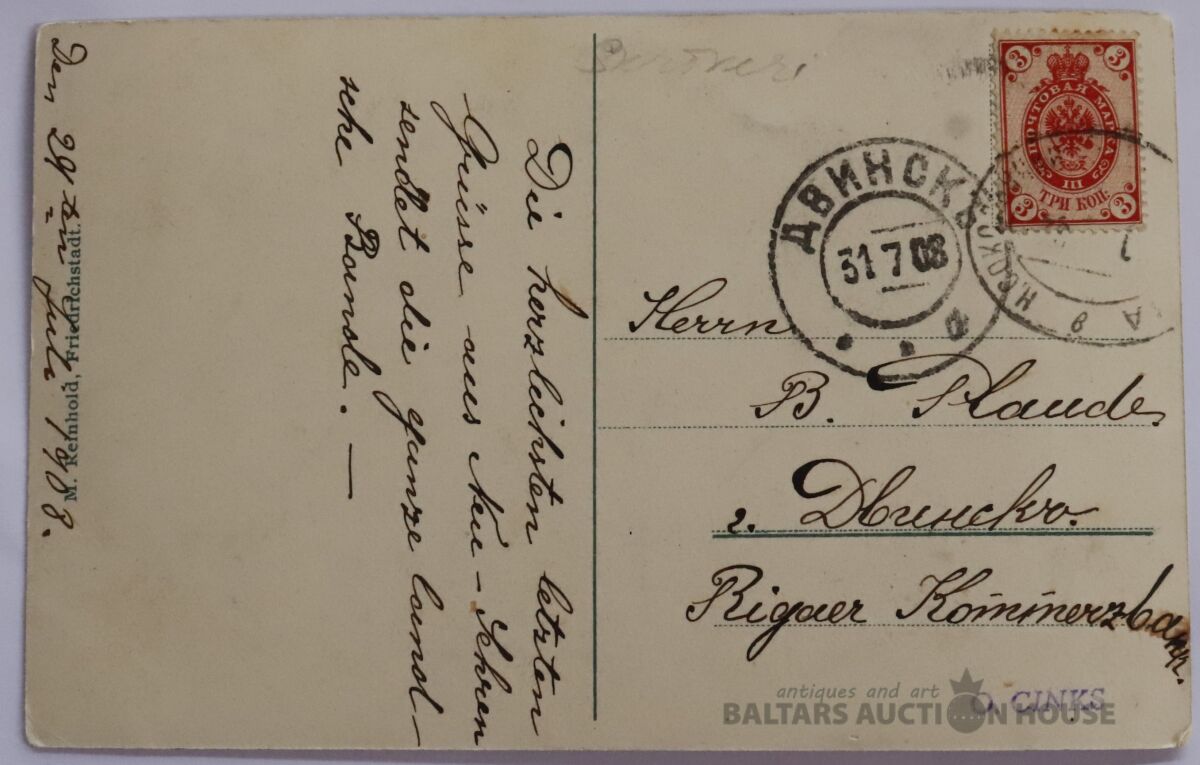 Den 29ten Juli 1908.
M. Reinhold, Friedrichstadt.
Die herzlichsten letzten
Grüsse aus Neu-Sehren
sendet die ganze land-
sche Bande. —
3 3
ПОЧТОВАЯ МАРКА
III
ТРИ КОП.
3 3
ДВИНСКЪ
31 7 08
Herrn
B. Plaude
г. Двинскъ.
Rigaer Kommerzbank.
O. CINKS
antiques and art
BALTARS AUCTION HOUSE